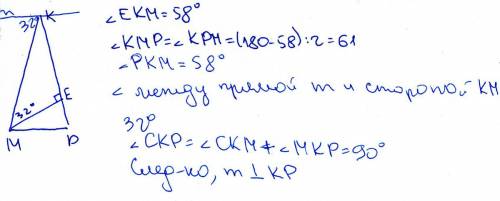 m
K
32°
E
32°
M
P
∠EKM=58°
∠KMP=∠KPM=(180-58):2=61
∠PKM=58°
∠ между прямой m и стороной KM
32°
∠CKP=∠CKM+∠MKP=90°
След-но, m⊥KP